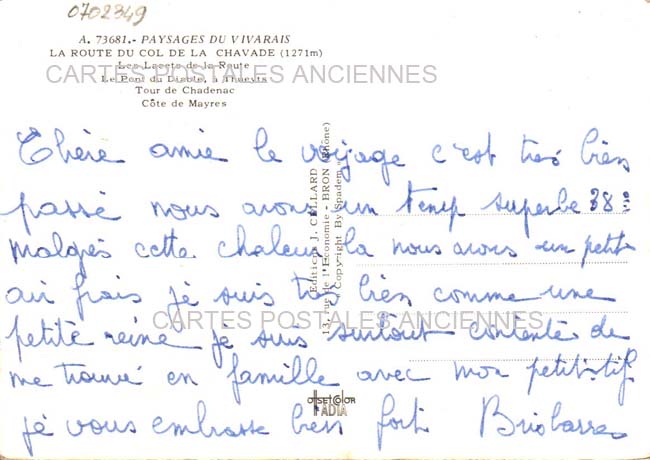 0702349
A. 73681.- PAYSAGES DU VIVARAIS
LA ROUTE DU COL DE LA CHAVADE (1271m)
Les Lacets de la Route
Le Pont du Diable, à Thueyts
Tour de Chadenac
Côte de Mayres
CARTES POSTALES ANCIENNES
Chère amie le voyage c'est très bien
passé nous avons un temp superbe 38°
malgrés cette chaleur la nous avons un petit
air frais je suis très bien comme une
petite reine je suis surtout contente de
me trouvé en famille avec mon petit
je vous embrasse bien fort
Editions J. CELLARD
13, rue de l'Economie - BRON (Rhône)
Copyright. By Spadem
CARTES POSTALES ANCIENNES
OFFSETCOLOR
IADIA